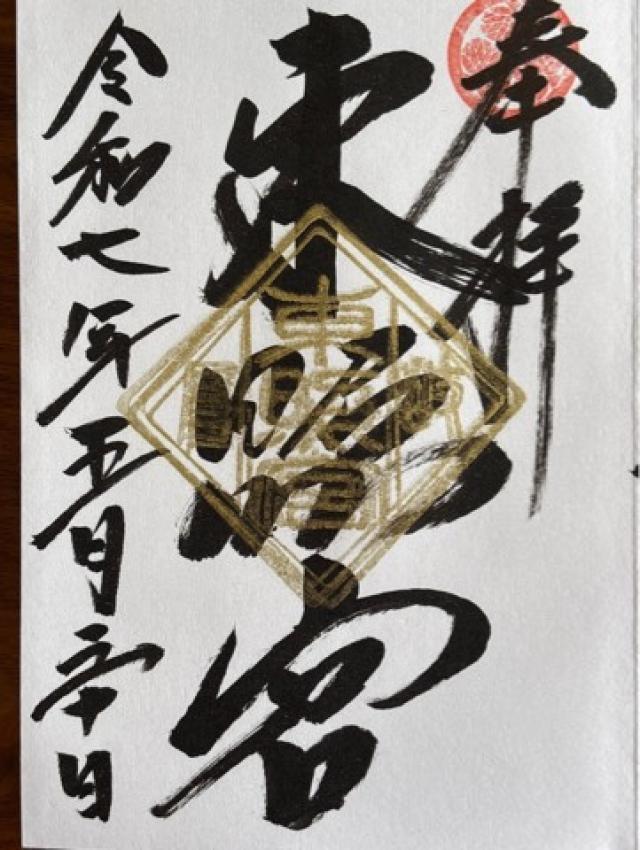 奉拝
東照宮
令和七年五月三十日